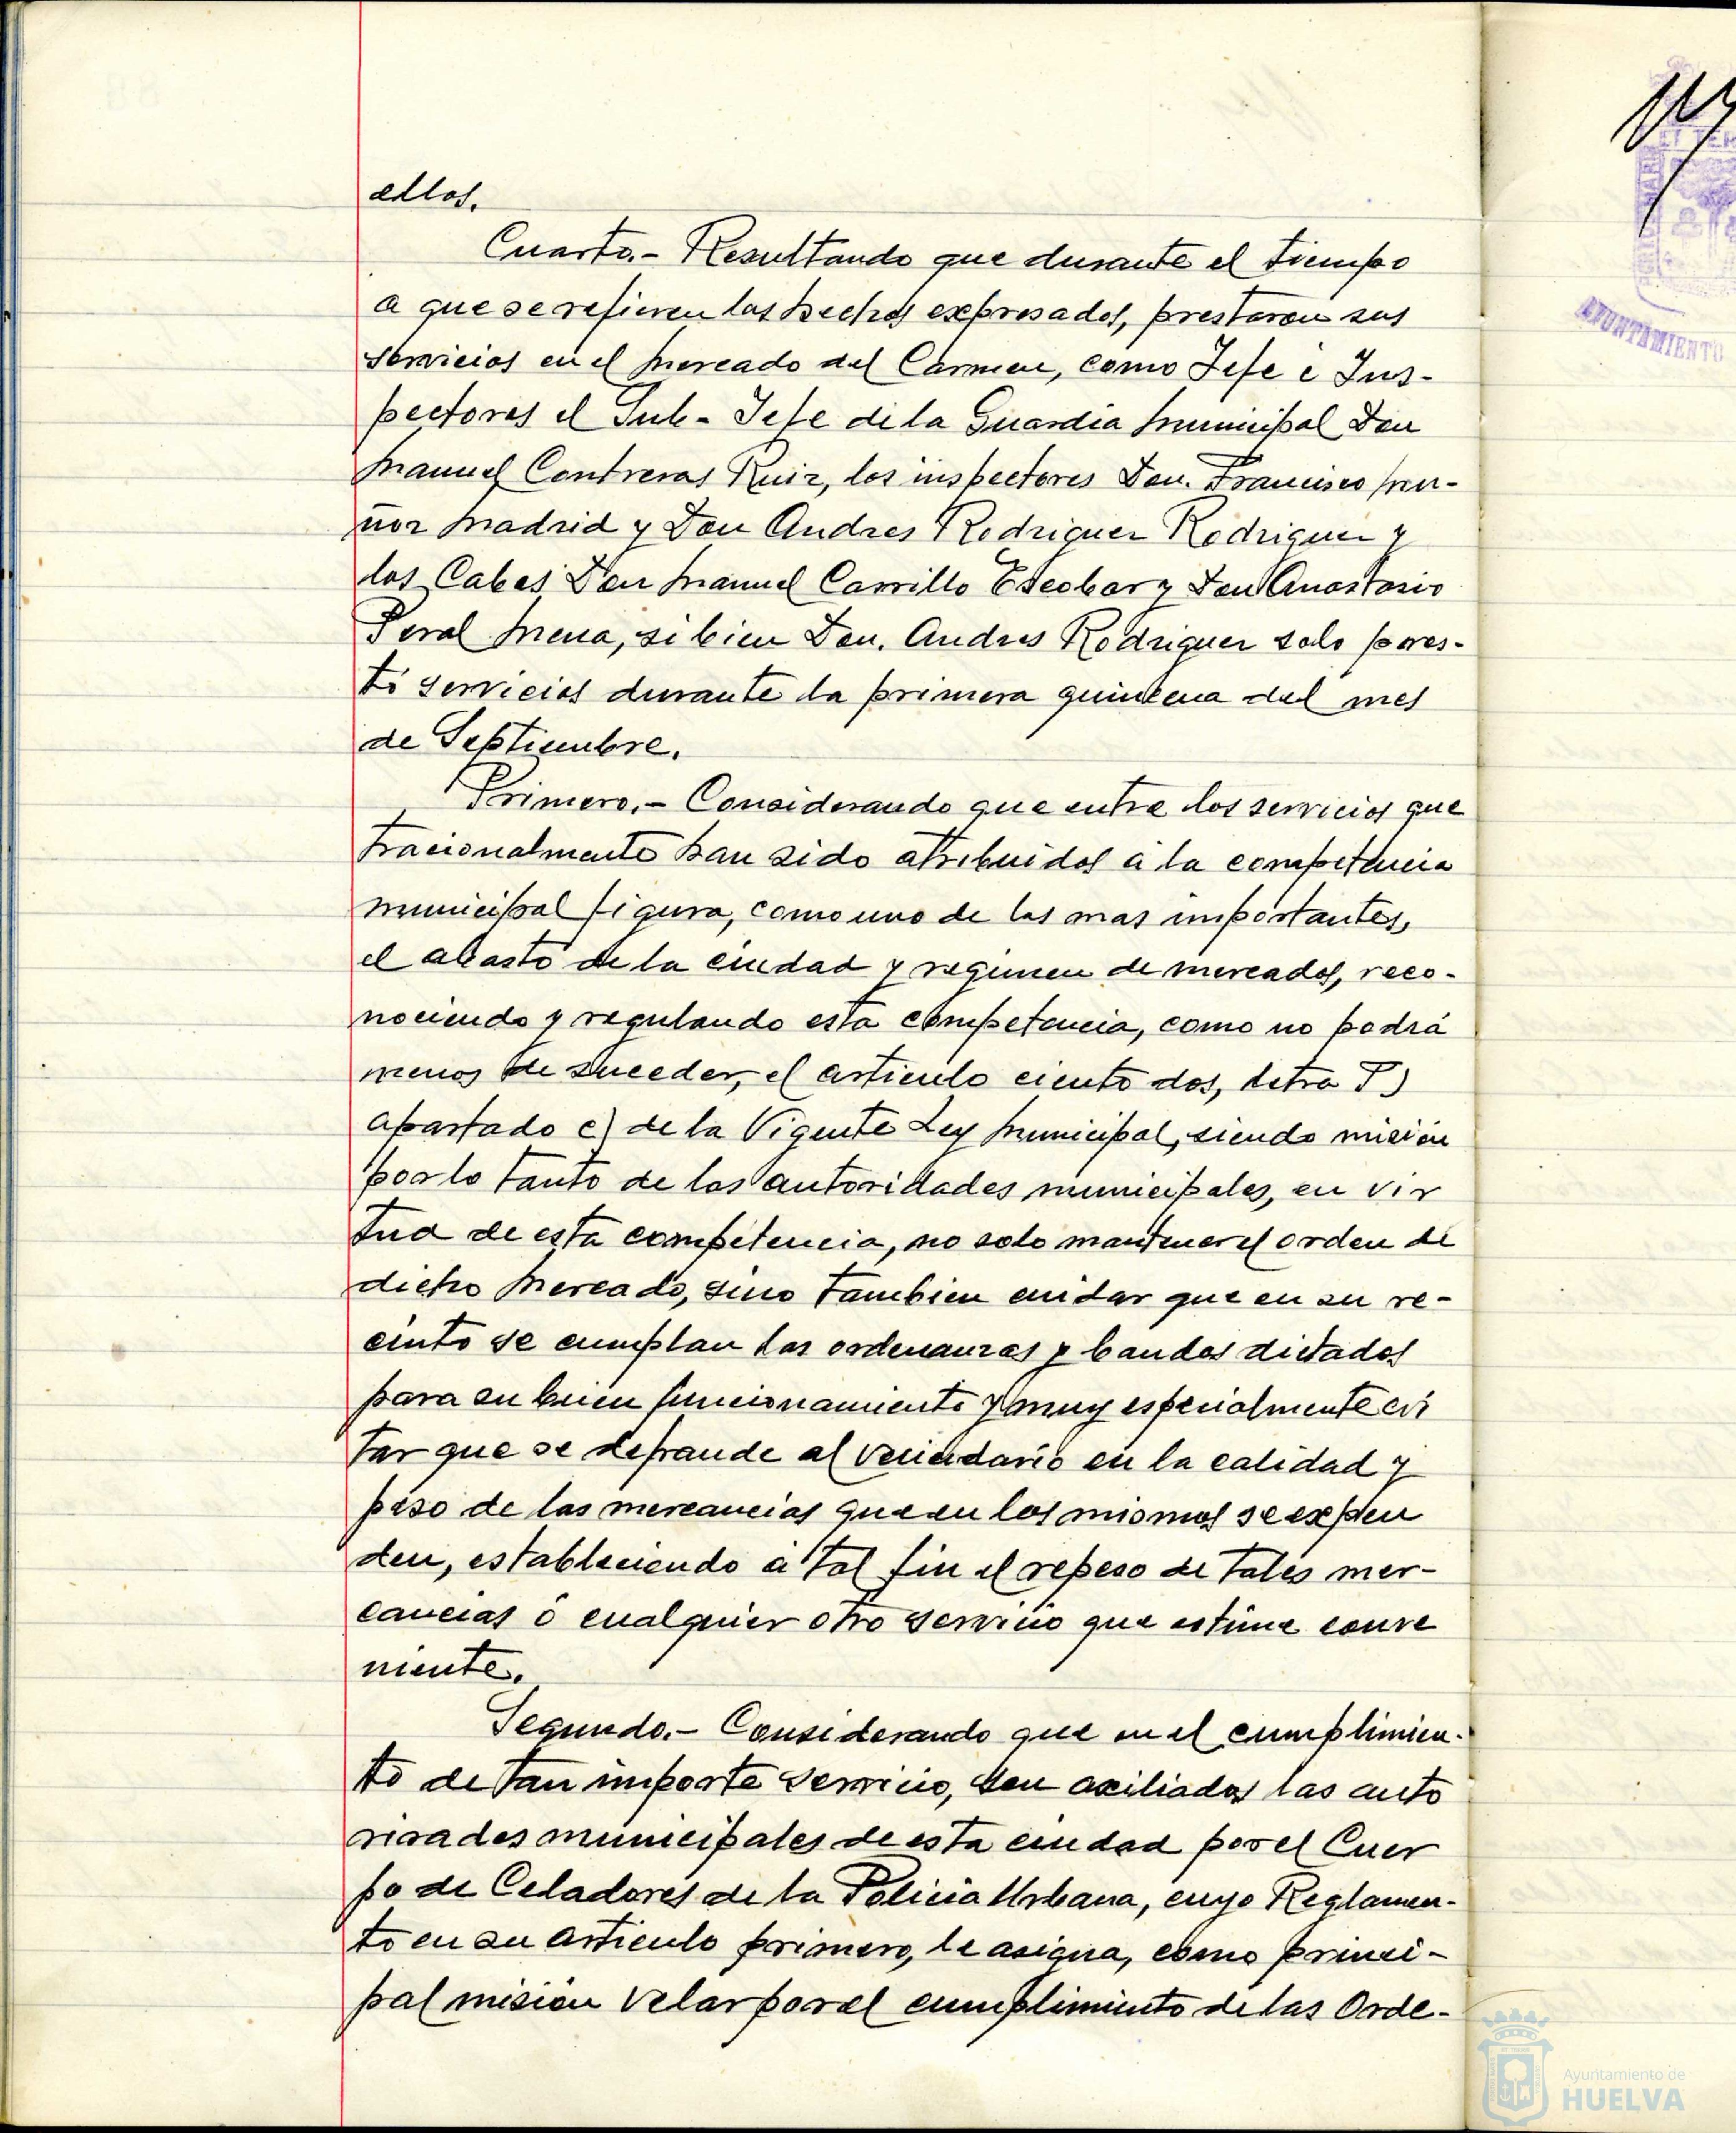 ellos.
Cuarto.- Resultando que durante el tiempo
a que se refieren los hechos expresados, prestaron sus
servicios en el Mercado del Carmen, como Jefe e Ins-
pectores el Sub-Jefe de la Guardia Municipal Don
Manuel Contreras Ruiz, los inspectores Don. Francisco Mu-
ñoz Madrid y Don Andres Rodriguez Rodriguez y
los Cabos Don Manuel Carrillo Escobar y Don Anastasio
Peral Mena, si bien Don. Andres Rodriguez solo pres-
tó servicios durante la primera quincena del mes
de Septiembre.
Primero.- Considerando que entre los servicios que
tracionalmente han sido atribuidos a la competencia
municipal figura, como uno de los mas importantes,
el abasto de la ciudad y regimen de mercados, reco-
nociendo y regulando esta competencia, como no podrá
menos de suceder, el articulo ciento dos, letra
apartado c) de la Vigente Ley Municipal, siendo misión
por lo tanto de las autoridades municipales, en vir
tud de esta competencia, no solo mantener el orden de
dicho Mercado, sino tambien cuidar que en su re-
cinto se cumplan las ordenanzas y bandos dictados
para su buen funcionamiento y muy especialmente evi
tar que se defraude al vecindario en la calidad y
peso de las mercancias que en los mismos se expen
den, estableciendo a tal fin el repeso de tales mer-
cancias ó cualquier otro servicio que estime conve
niente.
Segundo.- Considerando que en el cumplimien-
to de tan importe servicio, son axiliados las auto
ridades municipales de esta ciudad por el Cuer
po de Celadores de la Policia Urbana, cuyo Reglamen-
to en su articulo primero, le asigna, como princi-
pal misión velar por el cumplimiento de las Orde-
AYUNTAMIENTO
Ayuntamiento de
HUELVA